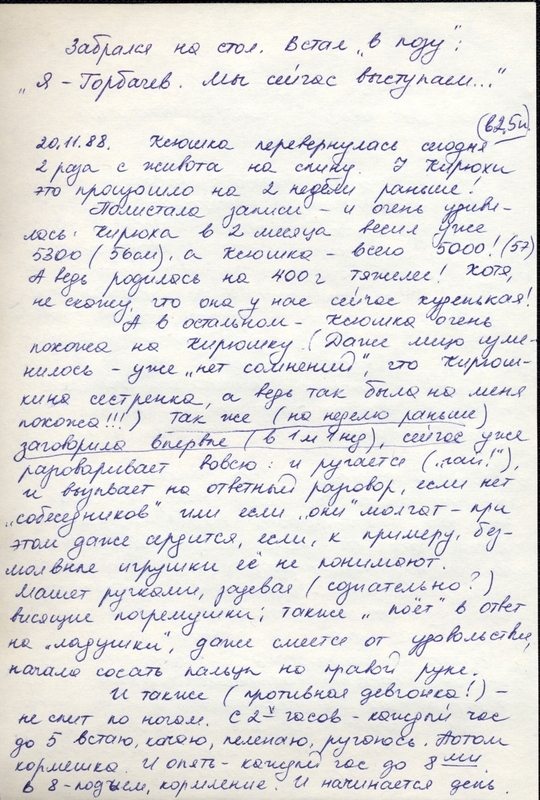 Забрался на стол. Встал „в позу“:
„Я – Горбачев. Мы сейчас выступаем...“
(в 2,5 м.)
20.11.88. Ксюшка перевернулась сегодня
2 раза с живота на спину. У Кирюхи
это произошло на 2 недели раньше!
Полистала записи – и очень удиви-
лась: Кирюха в 2 месяца весил уже
5300 (56 см), а Ксюшка – всего 5000! (57)
А ведь родилась на 400 г тяжелее! Хотя,
не скажу, что она у нас сейчас худенькая!
А в остальном – Ксюшка очень
похожа на Кирюшку. (Даже лицо изме-
нилось – уже „нет сомнений“, что Кирюш-
кина сестренка, а ведь так была на меня
похожа!!!) Так же (на неделю раньше)
заговорила впервые (в 1 м 1 нед), сейчас уже
разговаривает вовсю: и ругается („гаи!“),
и вызывает на ответный разговор, если нет
„собеседников“ или если „они“ молчат – при
этом даже сердится, если, к примеру, без-
молвные игрушки её не понимают.
Машет ручками, задевая (сознательно?)
висящие погремушки; также „поёт“ в ответ
на „ладушки“, даже смеется от удовольствия,
начала сосать пальцы на правой руке.
И также (противная девчонка!) –
не спит по ночам. С 2х часов – каждый час
до 5 встаю, качаю, пеленаю, ругаюсь. Потом
кормежка. И опять – каждый час до 8ми
в 8 – подъем, кормление. И начинается день.